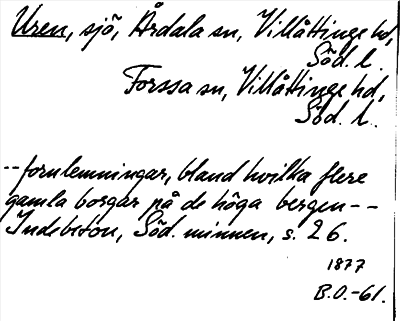 Uren, sjö, Årdala sn, Villåttinge hd,
Söd. l.
Forssa sn, Villåttinge hd,
Söd. l.
--fornlemningar, bland hvilka flere
gamla borgar på de höga bergen--
Indebetou, Söd. minnen, s. 26.
1877
B.O.-61.